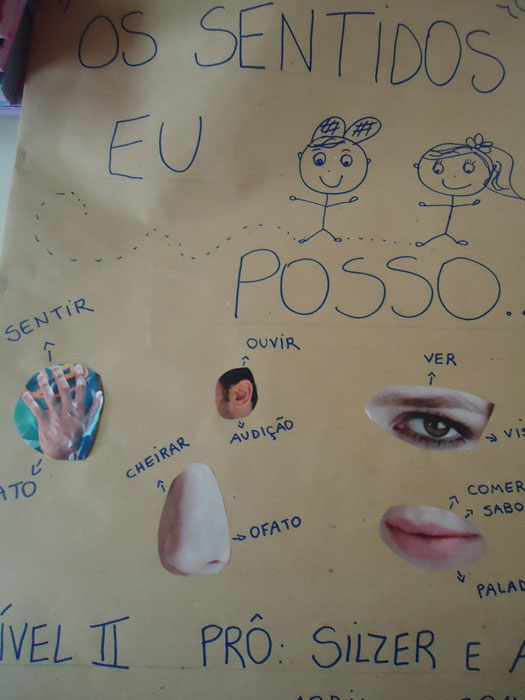 OS SENTIDOS
EU
POSSO..
SENTIR
ATO
OUVIR
AUDIÇÃO
VER
VIS
CHEIRAR
OFATO
COMER
SABO
PALAD
ÍVEL II PRÔ: SILZER E A